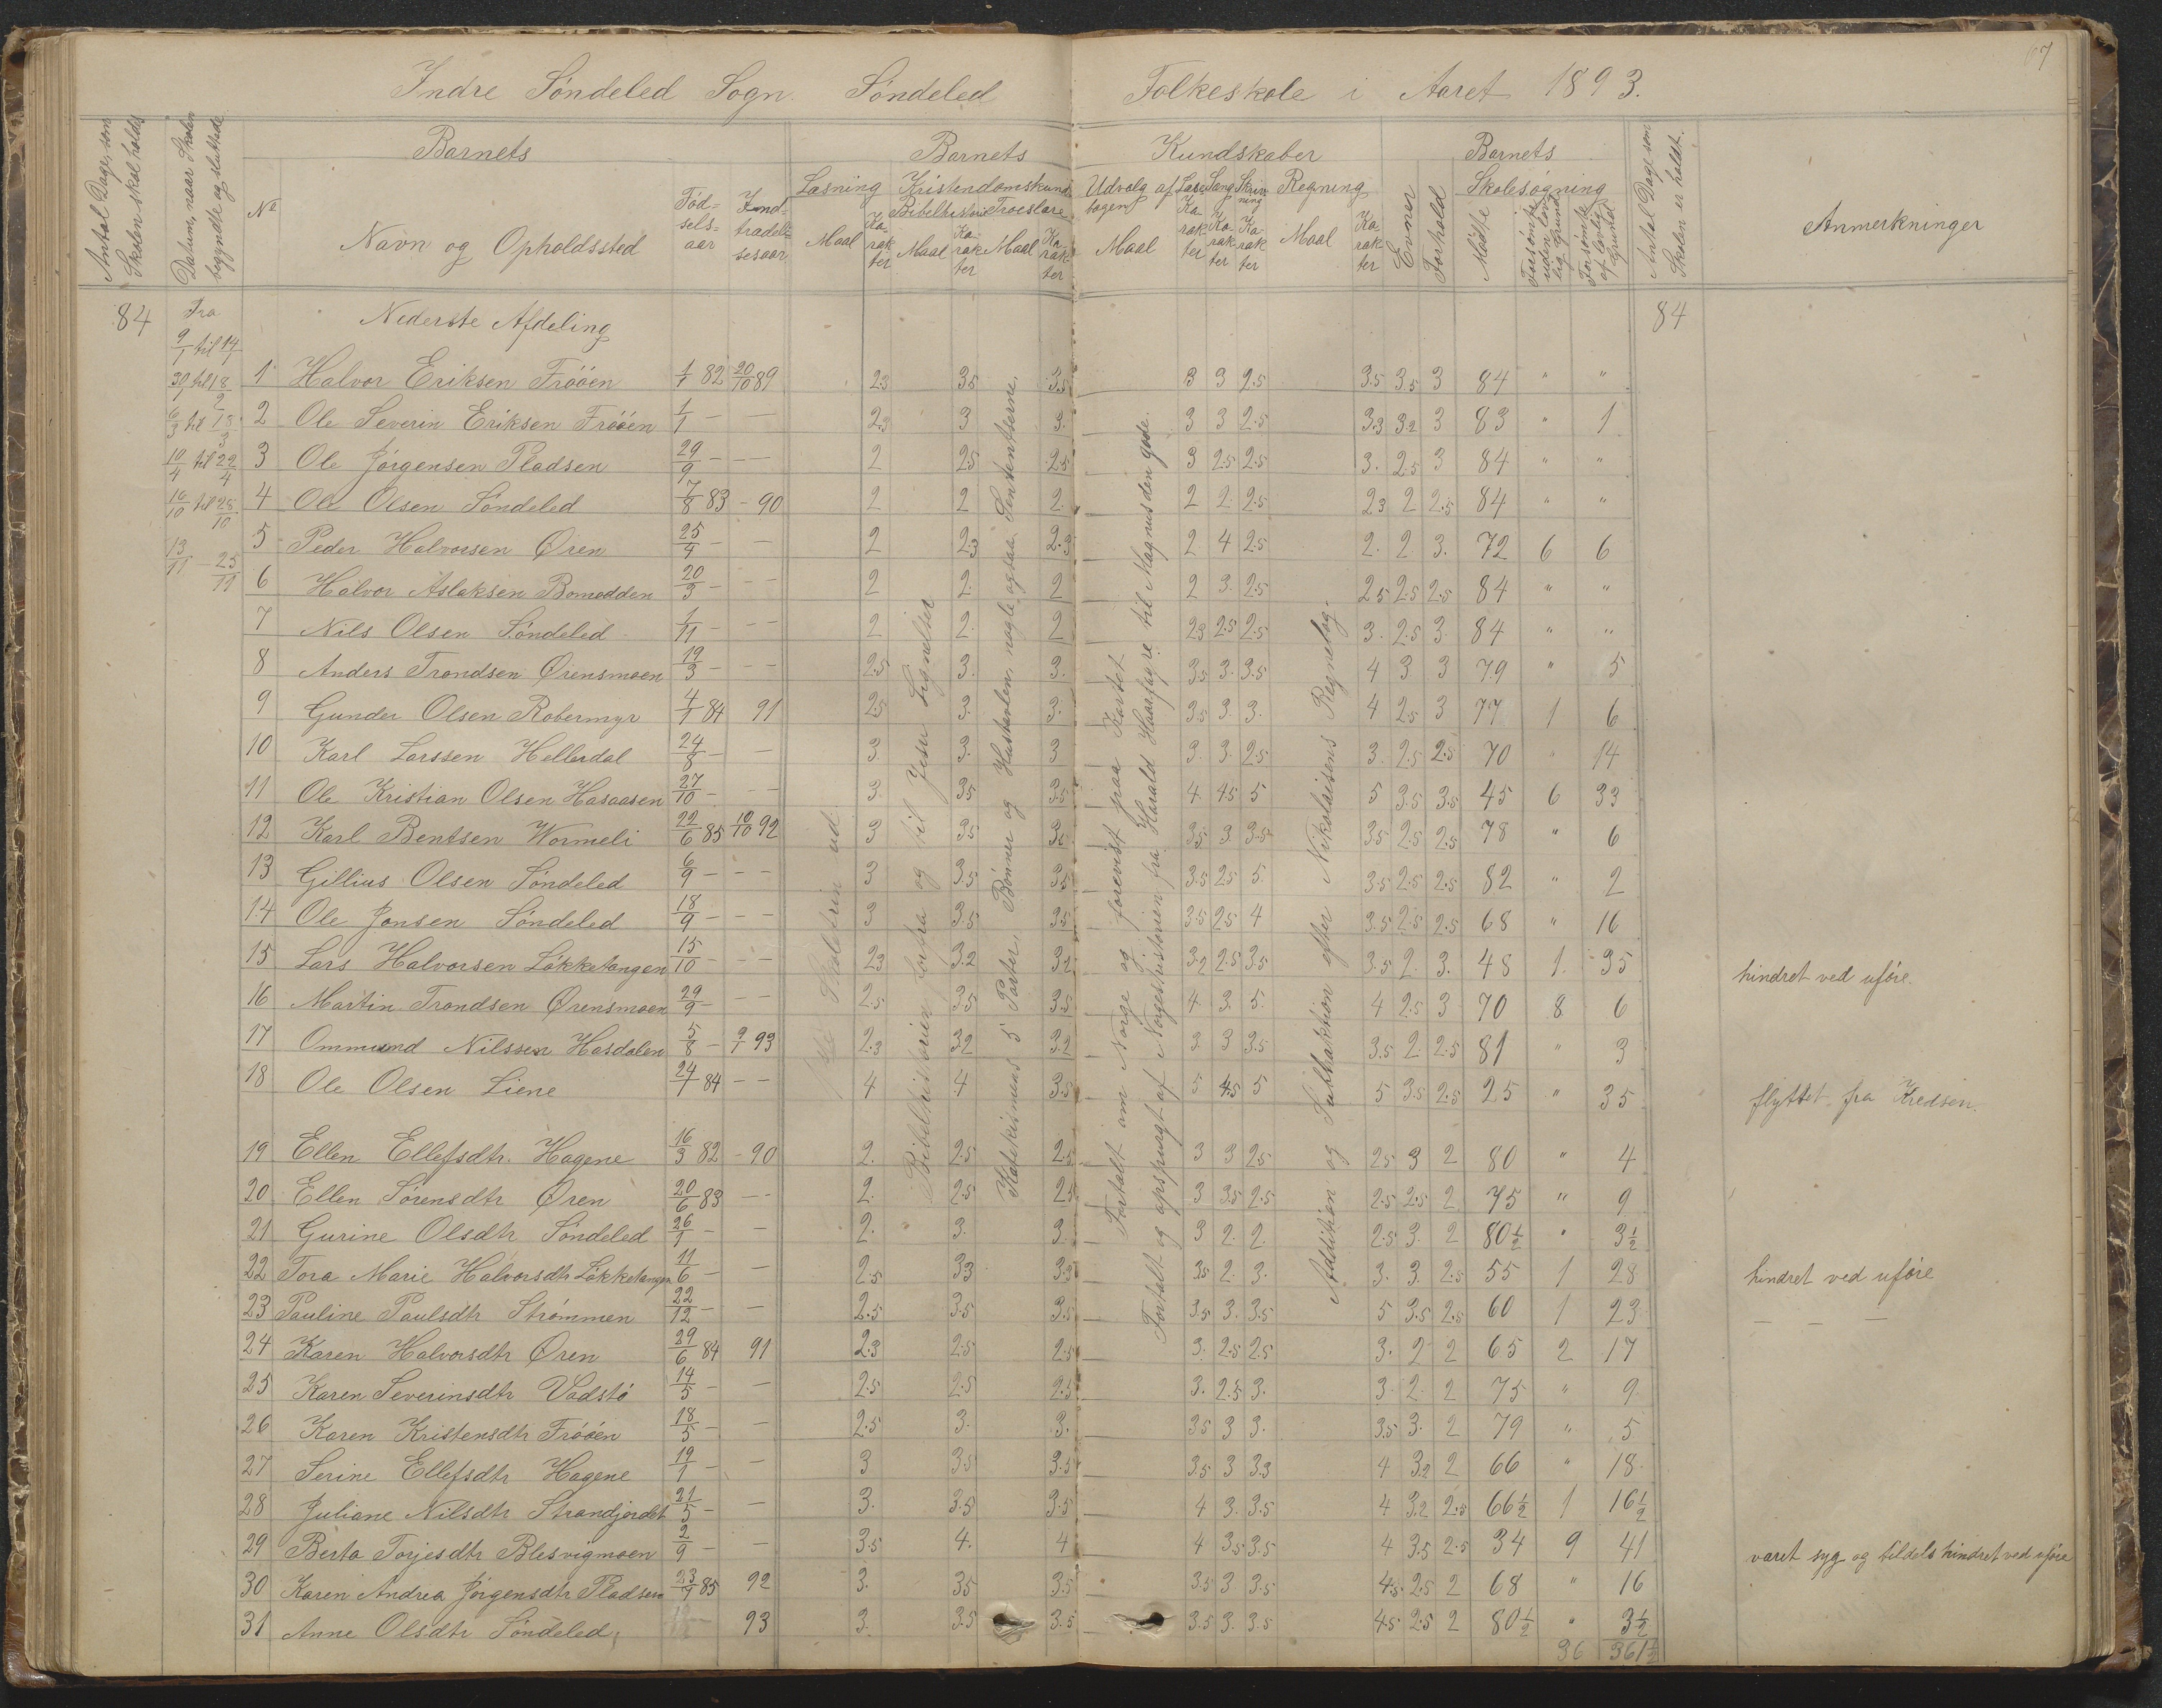 67
Indre Søndeled Sogn. Søndeled Folkeskole i Aaret 1893.
Antal Dage, som Skolen skal holdes
Datum, naar Skolen begyndte og sluttede
Barnets
No
Navn og Opholdssted
Fødselsaar
Indtrædelsesaar
Barnets Kundskaber
Læsning
Maal
Karakter
Kristendomskund
Bibelhistorie
Maal
Karakter
Troeslære
Maal
Karakter
Udvalg af Læsebogen
Maal
Karakter
Sang
Karakter
Skrivning
Karakter
Regning
Maal
Karakter
Evner
Forhold
Barnets Skolesøgning
Mødte
Forsømte uden lovlig Grund
Forsømte af lovlig Grund
Antal Dage som Skolen er holdt.
Anmerkninger
84 Fra Nederste Afdeling 84
9/1 til 14/1
30/1 til 18/2
6/3 til 18/3
10/4 til 22/4
16/10 til 28/10
13/11 - 25/11
1 Halvor Eriksen Frøøen 1/1 82 20/10 89 2.3 3.5 3.5 3 3 2.5 3.5 3.5 3 84 " "
2 Ole Severin Eriksen Frøøen 1/1 — — 2.3 3 3. 3 3 2.5 3.3 3.2 3 83 " 1
3 Ole Jørgensen Pladsen 29/9 — — 2 2.5 2.5 3 2.5 2.5 3. 2.5 3 84 " "
4 Ole Olsen Søndeled 7/8 83 - 90 2 2 2. 2 2. 2.5 2.3 2 2.5 84 " "
5 Peder Halvorsen Øren 25/4 — — 2 2.3 2.3 2 4 2.5 2. 2. 3. 72 6 6
6 Halvor Aslaksen Bomodden 20/3 — — 2 2. 2 2 3. 2.5 2.5 2.5 2.5 84 " "
7 Nils Olsen Søndeled 1/11 — — 2 2. 2 2.3 2.5 2.5 3. 2.5 3. 84 " "
8 Anders Trondsen Ørensmoen 19/3 — — 2.5 3. 3. 3.5 3. 3.5 4 3 3 79 " 5
9 Gunder Olsen Robermyr 4/7 84 91 2.5 3. 3. 3.5 3. 3. 4 2.5 3 77 1 6
10 Karl Larssen Hellerdal 24/8 — — 3. 3. 3 3. 3. 2.5 3. 2.5 2.5 70 " 14
11 Ole Kristian Olsen Hasaasen 27/10 — — 3. 3.5 3.5 4. 4.5 5 5 3.5 3.5 45 6 33
12 Karl Bentsen Wormeli 22/6 85 10/10 92 3 3.5 3.5 3.5 3. 3.5 3.5 2.5 2.5 78 " 6
13 Gillius Olsen Søndeled 6/9 — — 3 3.5 3.5 3.5 2.5 5. 3.5 2.5 2.5 82 " 2
14 Ole Jonsen Søndeled 18/9 — — 3 3.5 3.5 3.5 2.5 4 3.5 2.5 2.5 68 " 16
15 Lars Halvorsen Løkketangen 15/10 — — 2.3 3.2 3.2 3.2 2.5 3.5 3.5 2. 3. 48 1. 35 hindret ved uføre.
16 Martin Trondsen Ørensmoen 29/9 — — 2.5 3.5 3.5 4. 3. 5. 4 2.5 3 70 8 6
17 Ommund Nilssen Hasdalen 5/8 — 9/1 93 2.3 3.2 3.2 3. 3 3.5 3.5 2. 2.5 81 " 3
18 Ole Olsen Liene 24/7 84 — — 4 4 3.5 5 4.5 5 5 3.5 2.5 25 " 35 flyttet fra Kredsen.
19 Ellen Ellefsdtr. Hagene 16/3 82 - 90 2. 2.5 2.5 3 3 2.5 2.5 3 2 80 " 4
20 Ellen Sørensdtr Øren 20/6 83 — 2. 2.5 2.5 3 3.5 2.5 2.5 2.5 2 75 " 9
21 Gurine Olsdtr Søndeled 26/1 — — 2. 3. 3. 3 2. 2. 2.5 3. 2 80½ " 3½
22 Tora Marie Halvorsdtr Løkketangen 11/6 — — 2.5 3.3 3.3 3.5 2. 3. 3. 3. 2.5 55 1 28 hindret ved uføre
23 Pauline Paulsdtr Strømmen 22/12 — — 2.5 3.5 3.5 3.5 3. 3.5 5 3.5 2.5 60 1 23 — — —
24 Karen Halvorsdtr Øren 29/6 84 91 2.3 2.5 2.5 3. 2.5 2.5 3. 2 2 65 2 17
25 Karen Severinsdtr Vadstø 14/5 — — 2.5 2.5 2.5 3. 2.5 3. 3. 2. 2 75 " 9
26 Karen Kristensdtr Frøøen 18/5 — — 2.5 3. 3. 3.5 3 3. 3.5 3. 2 79 " 5
27 Serine Ellefsdtr Hagene 19/1 — — 3 3.5 3.5 3.5 3 3.3 4 3.2 2 66 " 18
28 Juliane Nilsdtr Strandjordet 21/5 — — 3. 3.5 3.5 4 3. 3.5 4 3.2 2.5 66½ 1 16½
29 Berta Torjesdtr Blesvigmoen 2/9 — — 3.5 4. 4 4 3.5 3.5 4 3.5 2.5 34 9 41 været syg og tildels hindret ved uføre
30 Karen Andrea Jørgensdtr Pladsen 23/7 85 92 3. 3.5 3.5 3.5 3 3.5 4.5 2.5 2 68 " 16
31 Anne Olsdtr Søndeled 93 3. 3.5 3.5 3.5 3. 3.5 4.5 2.5 2 80½ " 3½
36 361½
Skoletrin ud
Bibelhistorien forfra og til Jesu Lignelser
Katekismus 5 Parter, Bønner og Hustavlen, nogle ogsaa Sententserne.
Fortalt om Norge og forevist paa Kartet
Fortalt og opspurgt af Norgeshistorien fra Harald Haarfagre til Magnus den gode.
Addition og Subtraktion efter Nikolaisens Regnebog.